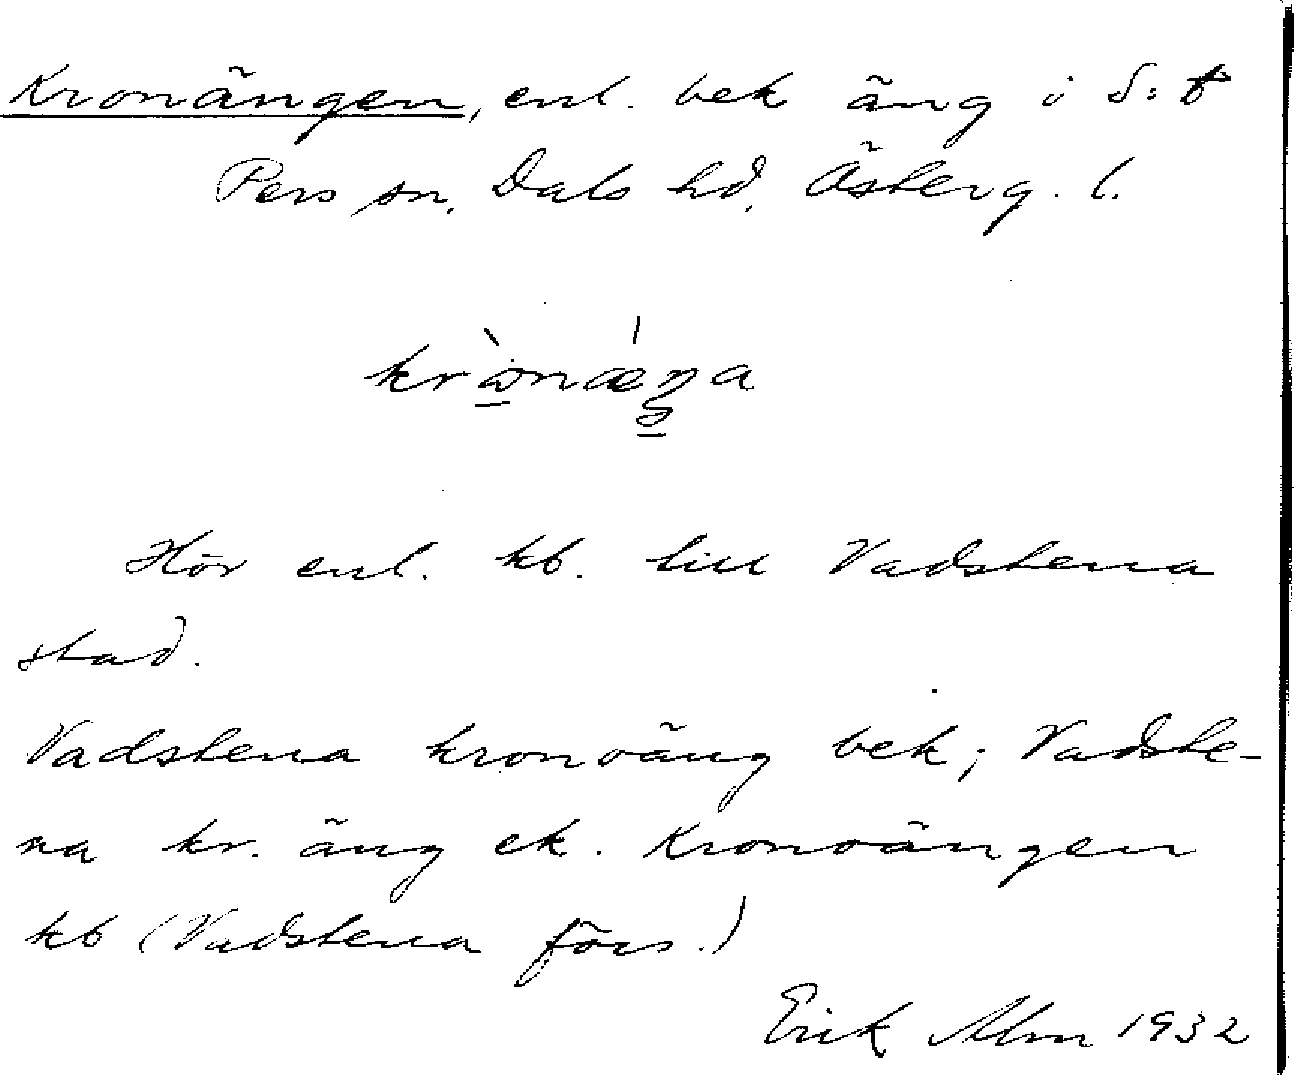 Kronängen, enl. bek äng i S:t
Pers sn, Dals hd, Österg. l.
Hör enl. kb. till Vadstena
stad.
Vadstena kronoäng bek; Vadste-
na kr. äng ek. Kronoängen
kb (Vadstena förs.)
Erik Alm 1932